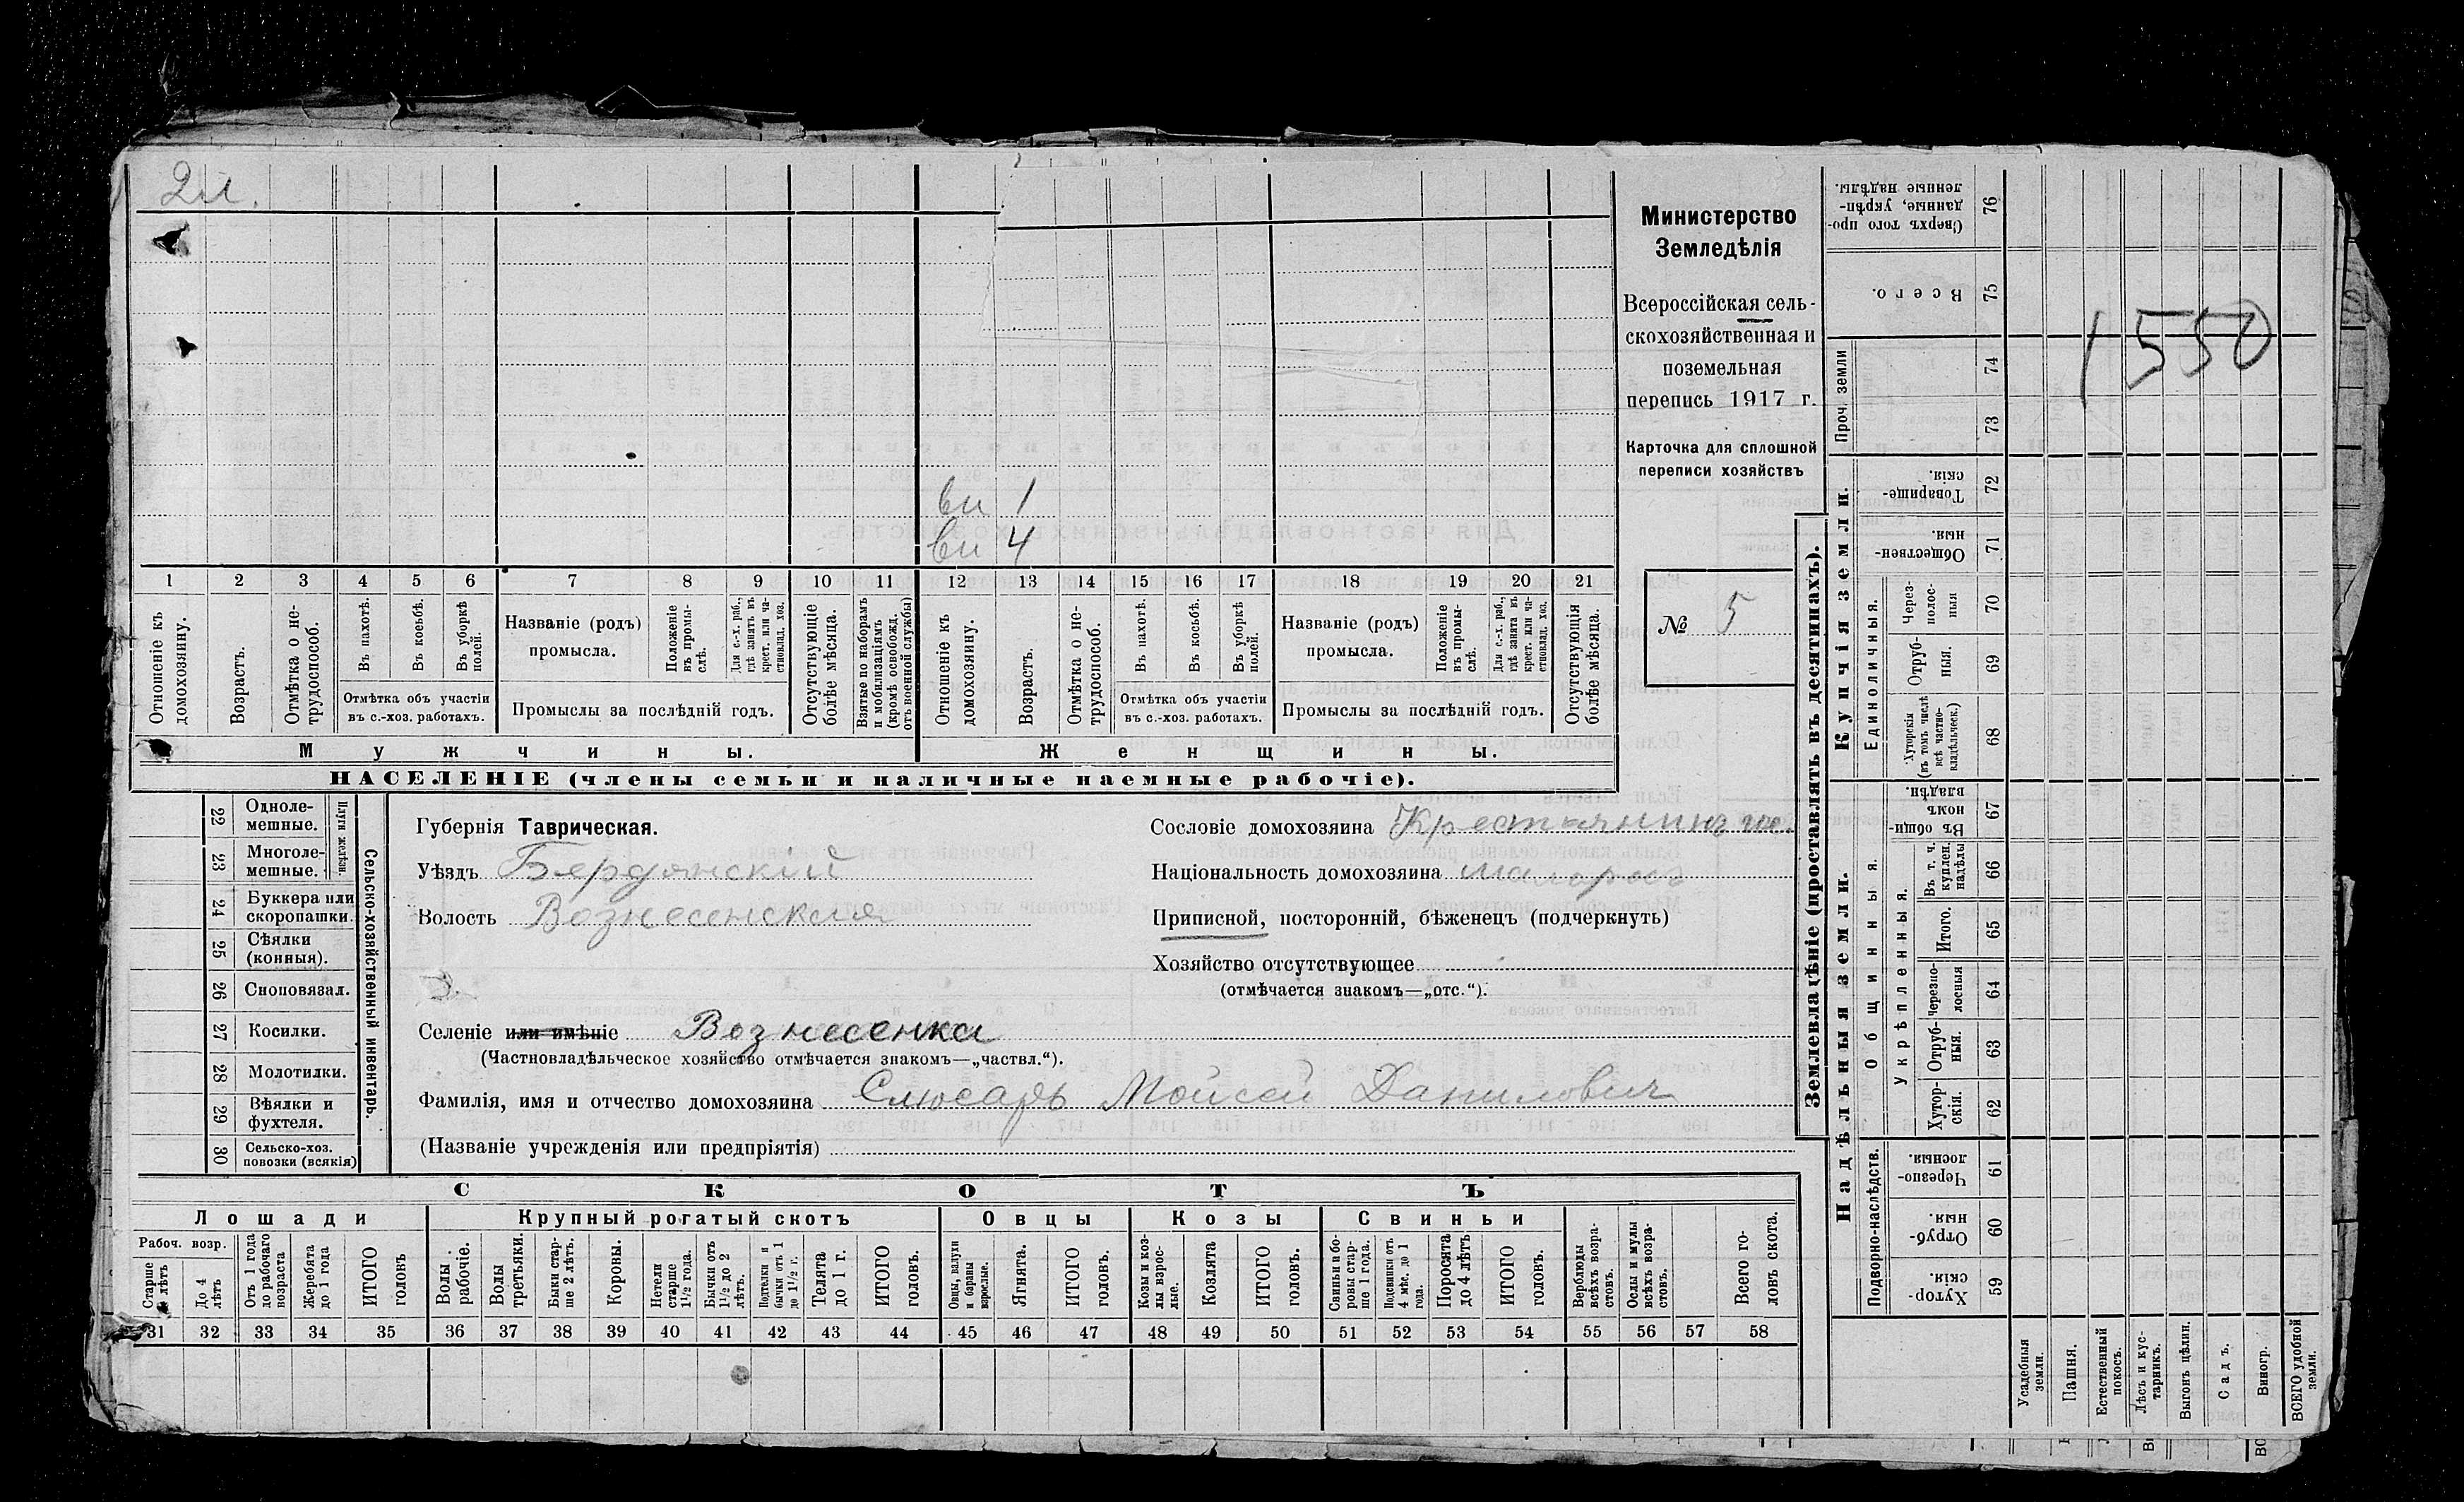 2л.
Министерство
Земледѣлія
Всероссійская сель-
скохозяйственная и
поземельная
перепись 1917 г.
Карточка для сплошной
переписи хозяйствъ
№ 5
1550
вн 1
вн 4
1 2 3 4 5 6 7 8 9 10 11 12 13 14 15 16 17 18 19 20 21
Отношеніе къ домохозяину.
Возрастъ.
Отмѣтка о не-трудоспособ.
Въ пахотѣ.
Въ косьбѣ.
Въ уборкѣ полей.
Отмѣтка объ участіи въ с.-хоз. работахъ.
Названіе (родъ) промысла.
Положеніе въ промы-слѣ.
Для с.-х. раб., гдѣ занятъ въ крест. или ча-стновлад. хоз.
Промыслы за послѣдній годъ.
Отсутствующіе болѣе мѣсяца.
Взятые по наборамъ и мобилизаціямъ (кромѣ освобожд. отъ военной службы)
Отношеніе къ домохозяину.
Возрастъ.
Отмѣтка о не-трудоспособ.
Въ пахотѣ.
Въ косьбѣ.
Въ уборкѣ полей.
Отмѣтка объ участіи въ с.-хоз. работахъ.
Названіе (родъ) промысла.
Положеніе въ промы-слѣ.
Для с.-х. раб., гдѣ занята въ крест. или ча-стновлад. хоз.
Промыслы за послѣдній годъ.
Отсутствующія болѣе мѣсяца.
Мужчины. Женщины.
НАСЕЛЕНІЕ (члены семьи и наличные наемные рабочіе).
22 Одноле-мешные.
23 Многоле-мешные.
Плуги желѣзн.
24 Буккера или скоропашки.
25 Сѣялки (конныя).
26 Сноповязал.
27 Косилки.
28 Молотилки.
29 Вѣялки и фухтеля.
30 Сельско-хоз. повозки (всякія)
Сельско-хозяйственный инвентарь.
Губернія Таврическая.
Уѣздъ Бердянскій
Волость Вознесенская
Сословіе домохозяина Крестьянинъ
Національность домохозяина малоросъ
Приписной, посторонній, бѣженецъ (подчеркнуть)
Хозяйство отсутствующее
(отмѣчается знакомъ—„отс.“).
Селеніе или имѣніе Вознесенка
(Частновладѣльческое хозяйство отмѣчается знакомъ—„частвл.“).
Фамилія, имя и отчество домохозяина Слюсарь Мойсей Данилович
(Названіе учрежденія или предпріятія)
СКОТЪ
Лошади Крупный рогатый скотъ Овцы Козы Свиньи
Рабоч. возр.
Старше 4 лѣтъ
До 4 лѣтъ
Отъ 1 года до рабочаго возраста
Жеребята до 1 года
ИТОГО головъ
Волы рабочіе.
Волы третьяки.
Быки стар-ше 2 лѣтъ.
Коровы.
Нетели старше 1½ года.
Бычки отъ 1½ до 2 лѣтъ.
Подтелки и бычки отъ 1 до 1½ г.
Телята до 1 г.
ИТОГО головъ.
Овцы, валухи и бараны взрослые.
Ягнята.
ИТОГО головъ.
Козы и коз-лы взрос-лые.
Козлята
ИТОГО головъ.
Свиньи и бо-ровы стар-ше 1 года.
Подсвинки отъ 4 мѣс. до 1 года.
Поросята до 4 лѣтъ
ИТОГО головъ.
Верблюды всѣхъ возра-стовъ.
Ослы и мулы всѣхъ возра-стовъ.
Всего го-ловъ скота.
31 32 33 34 35 36 37 38 39 40 41 42 43 44 45 46 47 48 49 50 51 52 53 54 55 56 57 58
Землевладѣніе (проставлять въ десятинахъ).
Купчія земли.
Надѣльныя земли.
76 Сверхъ того про-данные, укрѣп-ленные надѣлы.
75 Всего.
Проч. земли
74
73
72 Товарище-скія
71 Обществен-ныя.
Единоличныя.
70 Через-полос-ныя
69 Отруб-ныя.
68 Хуторскія (въ томъ числѣ всѣ частно-владѣльческ.)
Общинныя.
67 Въ общи-номъ владѣн.
Укрѣпленныя.
66 Въ т. ч. куплен. надѣлы
65 Итого.
64 Черезпо-лосныя
63 Отруб-ныя.
62 Хутор-скія.
Подворно-наслѣдств.
61 Черезпо-лосныя.
60 Отруб-ныя.
59 Хутор-скія.
Усадебныя земли.
Пашня.
Естественный покосъ.
Лѣсъ и кус-тарникъ.
Выгонъ цѣлин.
Садъ.
Виногр.
ВСЕГО удобной земли.